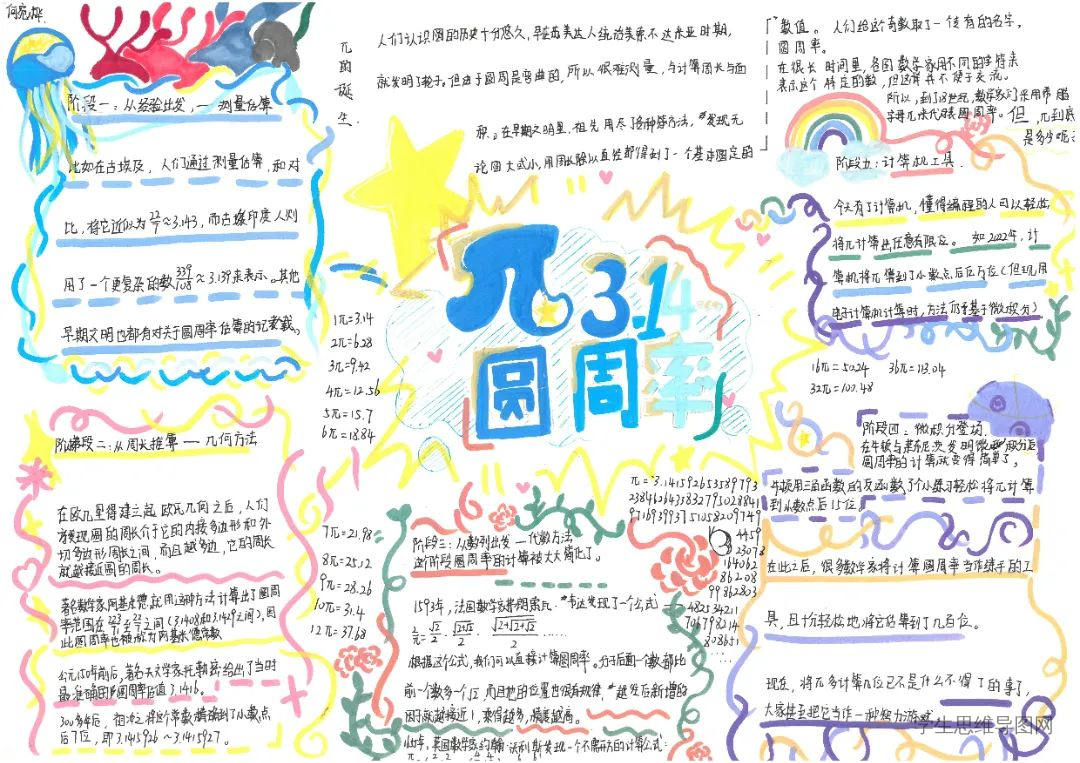 何宛烨
π的诞生
人们认识圆的历史十分悠久,早在苏美达人统治美索不达米亚时期,
就发明了轮子。但由于圆周是弯曲的,所以很难测量,与计算周长与面
积。在早期文明里,祖先用尽了各种等方法,发现无
论圆大或小,用周长除以直径都得到了一个基本固定的
数值。人们给这个奇数取了一个专有的名字,
圆周率。
在很长时间里,各国数学家用不同的字符来
表示这个特定的数,但这样并不便于交流。
所以,到了18世纪,数学家们采用希腊
字母π来代表圆周率。但,π到底
是多少呢?
阶段一:从经验出发,— 测量估算
比如在古埃及,人们通过测量估算,和对
比,将它近似为22/7≈3.143,而古埃印度人则
用了一个更复杂的数339/108≈3.139来表示。其他
早期文明也都有对于圆周率估算的记载。
π 3.14
圆周率
1π=3.14
2π=6.28
3π=9.42
4π=12.56
5π=15.7
6π=18.84
7π=21.98
8π=25.12
9π=28.26
10π=31.4
12π=37.68
16π=50.24 36π=113.04
32π=100.48
阶段二:从周长推算 — 几何方法
在欧几里得建立起欧氏几何之后,人们
发现圆的周长介于它的内接多边形和外
切多边形周长之间,而且越多边,它的周长
就越接近圆的周长。
著名数学家阿基米德,应用这种方法计算出了圆周
率范围在223/71与22/7之间(3.1408和3.1429之间),因
此圆周率也被称为阿基米德常数
公元150年前后,著名天文学家托勒密给出了当时
最准确的圆周率估值3.1416。
300多年后,祖冲之将这个常数精确到了小数点
后7位,即3.1415926~3.1415927。
阶段三:从数列出发 — 代数方法
这阶段圆周率的计算被大大简化了。
1593年,法国数学家弗朗索瓦·韦达发现了一个公式
2/π=√2/2·√(2+√2)/2·√(2+√(2+√2))/2……
根据这个公式,我们可以直接计算圆周率。分子后面一个数都比
前一个数多一个√2,而且他的位置也很有规律,越发后新增的
因子就越接近1,乘得越多,精度越高。
π=3.14159265358979
π=3.14159265358979 3
238462643383279502884
971693993751058209749
4459
23078
164062
86208
99862803
482534211
706798214
808651
……
阶段四:微积分登场
在牛顿与莱布尼茨发明微积分后
圆周率的计算就变得简单了,
牛顿用三角函数的反函数了个小练习轻松将π计算
到小数点后15位。
在此之后,很多数学家将计算圆周率当作练手的工
具,且访轻松地将它估算到了几百位。
现在,将π多计算几位已不是什么不得了的事了,
大家甚至把它当作一种智力游戏
阶段五:计算机工具.
今天有了计算机,懂得编程的人可以轻松
将π计算出任意有限位。如2022年,计
算机将π算到了小数点后百万位(但现用
电计算机计算时,方法仍基于微积分)
学生思维导图网